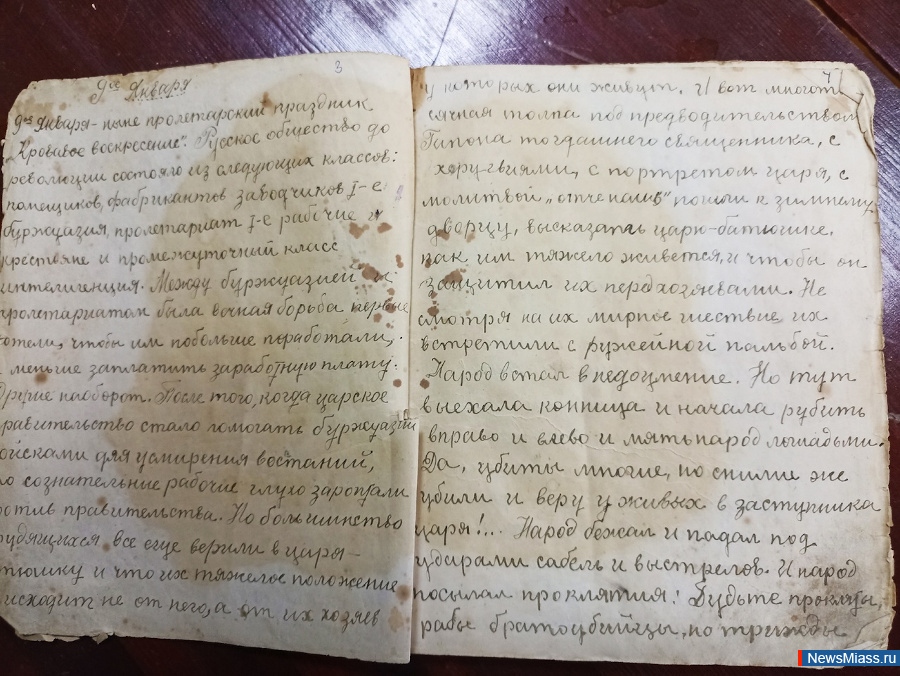 3
9го Января
9го Января - ныне пролетарский праздник
„Кровавое воскресение". Русское общество до
революции состояло из следующих классов:
помещиков, фабрикантов заводчиков I-е
буржуазия, пролетариат I-е рабочие и
крестьяне и промежуточный класс
интелигенция. Между буржуазией и
пролетариатом была вечная борьба первые
хотели, чтобы им побольше поработали,
меньше заплатить заработную плату.
Другие наоборот. После того, когда царское
равительство стало помогать буржуазии
ойсками для усмирения востаний,
о сознательные рабочие глухо зароптали
отив правительства. Но большинство
рудящихся все еще верили в царя-
тюшку и что их тяжелое положение
исходит не от него, а от их хозяев
4
у которых они живут. И вот многоты
сячная толпа под предводительством
Гапона тогдашнего священника, с
хоругвиями, с портретом царя, с
молитвой „отче наш" пошли к зимнему
дворцу, высказать царю-батюшке.
как им тяжело живется, и чтобы он
защитил их перед хозяевами. Не
смотря на их мирное шествие, их
встретили с ружейной пальбой.
Народ встал в недоумение. Но тут
выехала конница и начала рубить
вправо и влево и мять народ лошадьми.
Да, убиты многие, но сними же
убили и веру у живых в заступника
царя!... Народ бежал и падал под
ударами сабель и выстрелов. И народ
посылал проклятия: Будьте прокляты,
рабы братоубийцы, но трижды
NewsMiass.ru